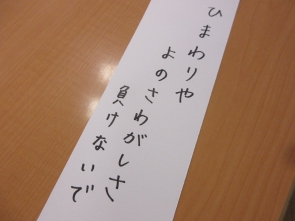 ひまわりや
よのさわがしさ
負けないで